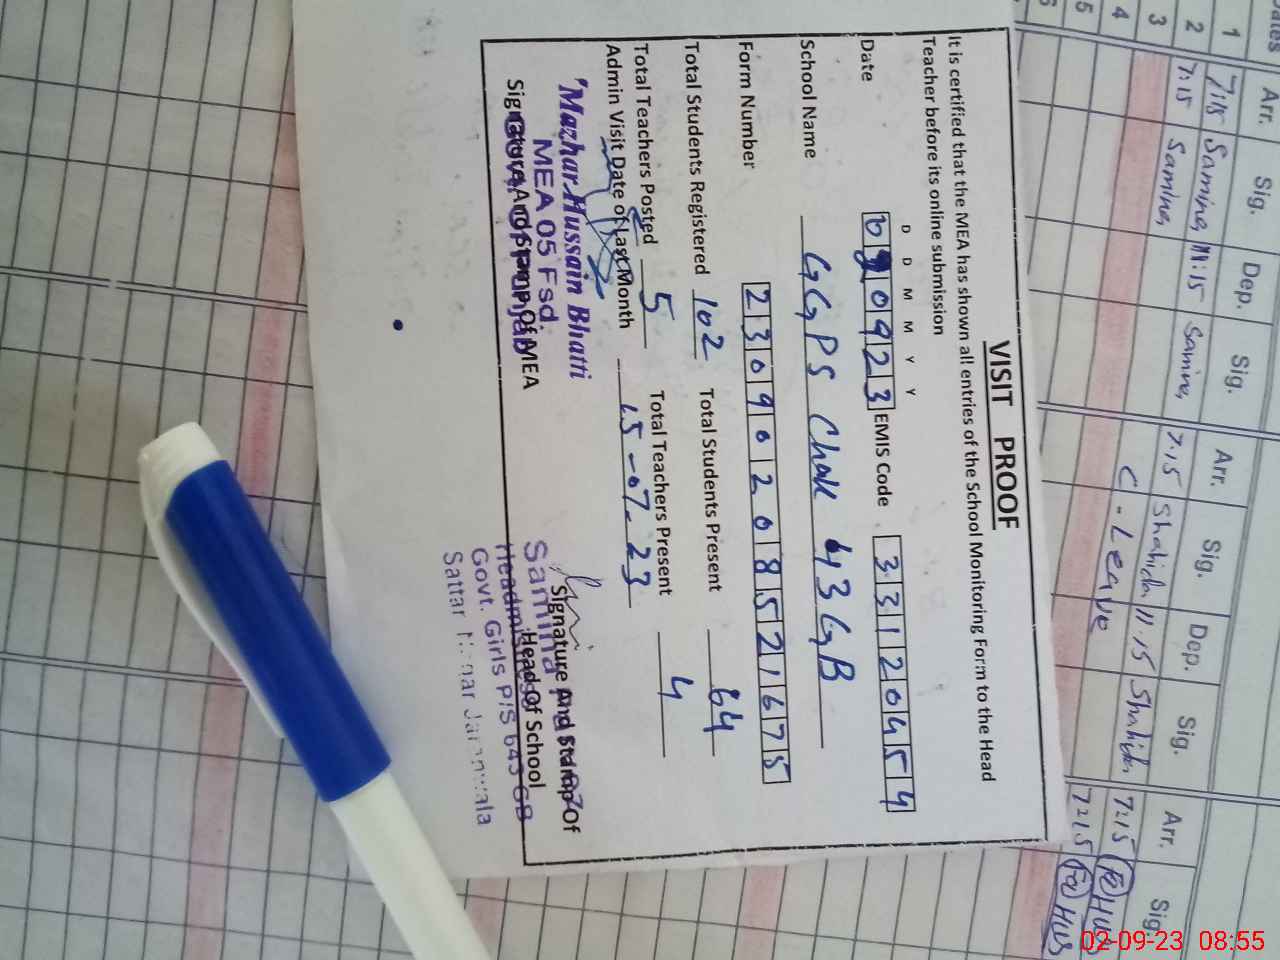 VISIT PROOF
It is certified that the MEA has shown all entries of the School Monitoring Form to the Head
Teacher before its online submission
D D M M Y Y
Date 020923 EMIS Code 33120454
School Name GGPS Chak 43 GB
Form Number 2309020852 1675
Total Students Registered 102 Total Students Present 64
Total Teachers Posted 5 Total Teachers Present 4
Admin Visit Date of Last Month 15-07-23
Mazhar Hussain Bhatti
MEA 05 Fsd.
Govt. Of Punjab
Signature And Stamp Of MEA
Signature And Stamp Of
Head Of School
Samina
Headmistress
Govt. Girls P/S 643 GB
Sattar Jaranwala
Arr. Sig. Dep. Sig. Arr. Sig. Dep. Sig. Arr. Sig.
1 7:15 Samina 11:15 Samina 7.15 Shahida 11.15 Shahida 7215
2 7:15 Samina C. Leave 7215
3
4
5
6
02-09-23 08:55